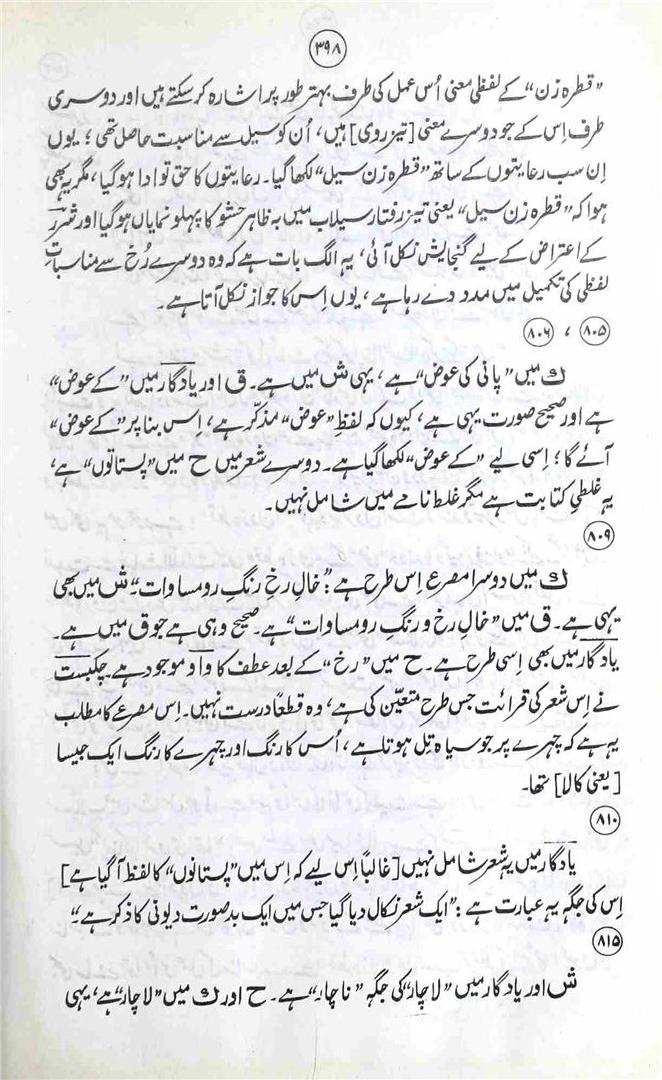 ۳۹۸
”قطرہ زن“ کے لفظی معنی اُس عمل کی طرف بہتر طور پر اشارہ کر سکتے ہیں اور دوسری
طرف اِس کے جو دوسرے معنی [تیز روی] ہیں، اُن کو سیل سے مناسبت حاصل تھی؛ یوں
اِن سب رعایتوں کے ساتھ ”قطرہ زن سیل“ لکھا گیا۔ رعایتوں کا حق تو ادا ہو گیا، مگر یہ بھی
ہوا کہ ”قطرہ زن سیل“ یعنی تیز رفتار سیلاب میں بہ ظاہر حشو کا پہلو نمایاں ہو گیا اور شرر
کے اعتراض کے لیے گنجایش نکل آئی، یہ الگ بات ہے کہ وہ دوسرے رُخ سے مناسباتِ
لفظی کی تکمیل میں مدد دے رہا ہے، یوں اِس کا جواز نکل آتا ہے۔
۸۰۵ ، ۸۰۶
ک میں ”پانی کی عوض“ ہے، یہی ش میں ہے۔ ق اور یادگار میں ”کے عوض“
ہے اور صحیح صورت یہی ہے، کیوں کہ لفظِ ”عوض“ مذکّر ہے، اس بنا پر ”کے عوض“
آئے گا؛ اِسی لیے ”کے عوض“ لکھا گیا ہے۔ دوسرے شعر میں ح میں ”پستاتوں“ ہے،
یہ غلطیِ کتابت ہے مگر غلط نامے میں شامل نہیں۔
۸۰۹
ک میں دوسرا مصرع اِس طرح ہے: ”خالِ رخِ رنگِ رو مساوات“۔ ش میں بھی
یہی ہے۔ ق میں ”خالِ رخ و رنگِ رو مساوات“ ہے۔ صحیح وہی ہے جو ق میں ہے۔
یادگار میں بھی اِسی طرح ہے۔ ح میں ”رخ“ کے بعد عطف کا واو موجود ہے۔ چکبست
نے اِس شعر کی قرائت جس طرح متعیّن کی ہے، وہ قطعاً درست نہیں۔ اِس مصرعے کا مطلب
یہ ہے کہ چہرے پر جو سیاہ تِل ہوتا ہے، اُس کا رنگ اور چہرے کا رنگ ایک جیسا
[یعنی کالا] تھا۔
۸۱۰
یادگار میں یہ شعر شامل نہیں [غالباً اِس لیے کہ اِس میں ”پستانوں“ کا لفظ آ گیا ہے]
اِس کی جگہ یہ عبارت ہے: ”ایک شعر نکال دیا گیا جس میں ایک بدصورت دیونی کا ذکر ہے“
۸۱۵
ش اور یادگار میں ”لاچار“ کی جگہ ”ناچار“ ہے۔ ح اور ک میں ”لاچار“ ہے، یہی